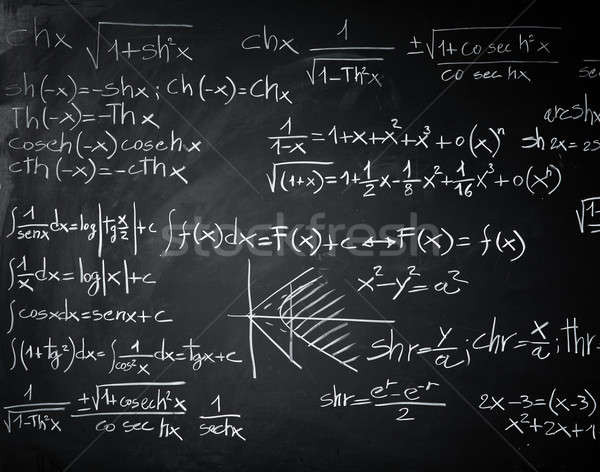 chx √1+sh²x chx 1/√1-Th²x ±√1+cosech²x/cosechx
sh(-x)=-shx; ch(-x)=chx
Th(-x)=-Thx
coseh(-x)cosehx
cth(-x)=-cthx
arcshx
1/1-x=1+x+x²+x³+o(x)ⁿ sh2x=2s
√(1+x)=1+1/2x-1/8x²+1/16x³+o(xⁿ)
∫1/senx dx=log|tg x/2|+c ∫f(x)dx=F(x)+c↔F(x)=f(x)
∫1/x dx=log|x|+c x²-y²=a²
∫cosxdx=senx+c
∫(1+tg²)dx=∫1/cos²x dx=tgx+c shr=y/a; chr=x/a; thr=
1/√1-Th²x ±√1+cosech²x/cosechx 1/sechx shr=eʳ-e⁻ʳ/2 2x-3=(x-3)
x²+2x+1
stockfresh